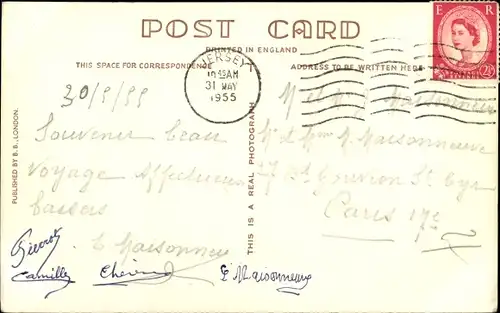 POST CARD
PRINTED IN ENGLAND
THIS SPACE FOR CORRESPONDENCE
ADDRESS TO BE WRITTEN HERE
E R
2½
JERSEY
10 15 AM
31 MAY
1955
PUBLISHED BY B.B., LONDON.
THIS IS A REAL PHOTOGRAPH
30/5/55
Souvenir beau
Voyage Affectueux
baisers
E Maisonneuve
Pierrot
Camille
E Maisonneuve
M et Mme M. Maisonneuve
7 Bd Gouvion St Cyr
Paris 17e